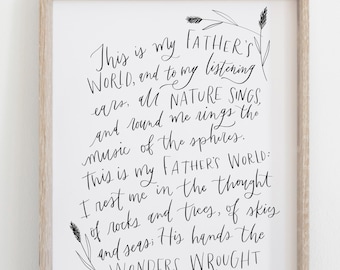 This is my FATHER'S
WORLD, and to my listening
ears, all NATURE SINGS,
and round me rings the
music of the spheres.
This is my FATHER'S WORLD:
I rest me in the thought
of rocks and trees, of skies
and seas; His hands the
WONDERS WROUGHT